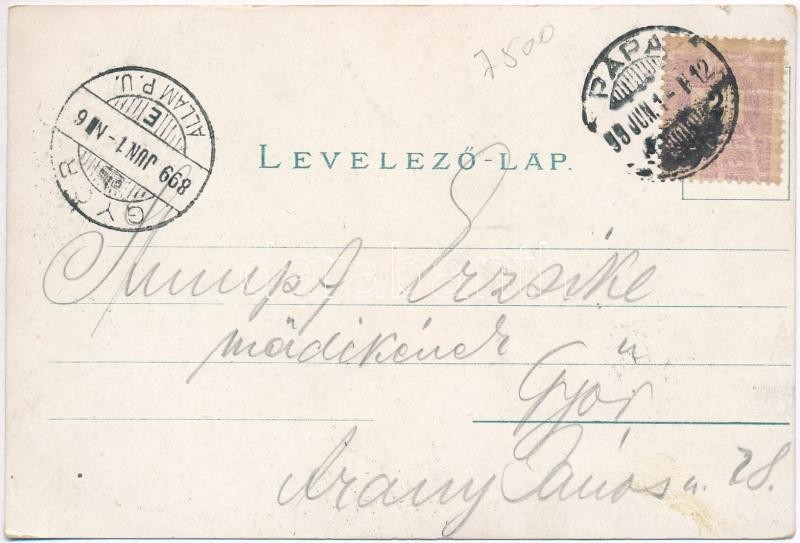 7500
PÁPA
99 JUN. 1
GYŐR
899 JUN. 1 - N 6
E
ÁLLAM P. U.
LEVELEZŐ-LAP.
Stumpf Erzsike
mädikének
Győr
Arany János u. 28.